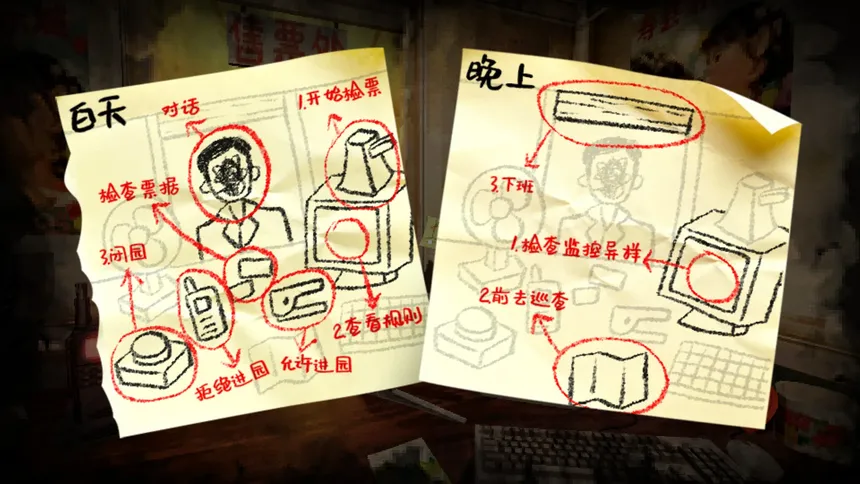 售票处
白天
对话
1.开始检票
检查票据
3.闭园
2.查看规则
拒绝进园
允许进园
晚上
3.下班
1.检查监控异样
2.前去巡查